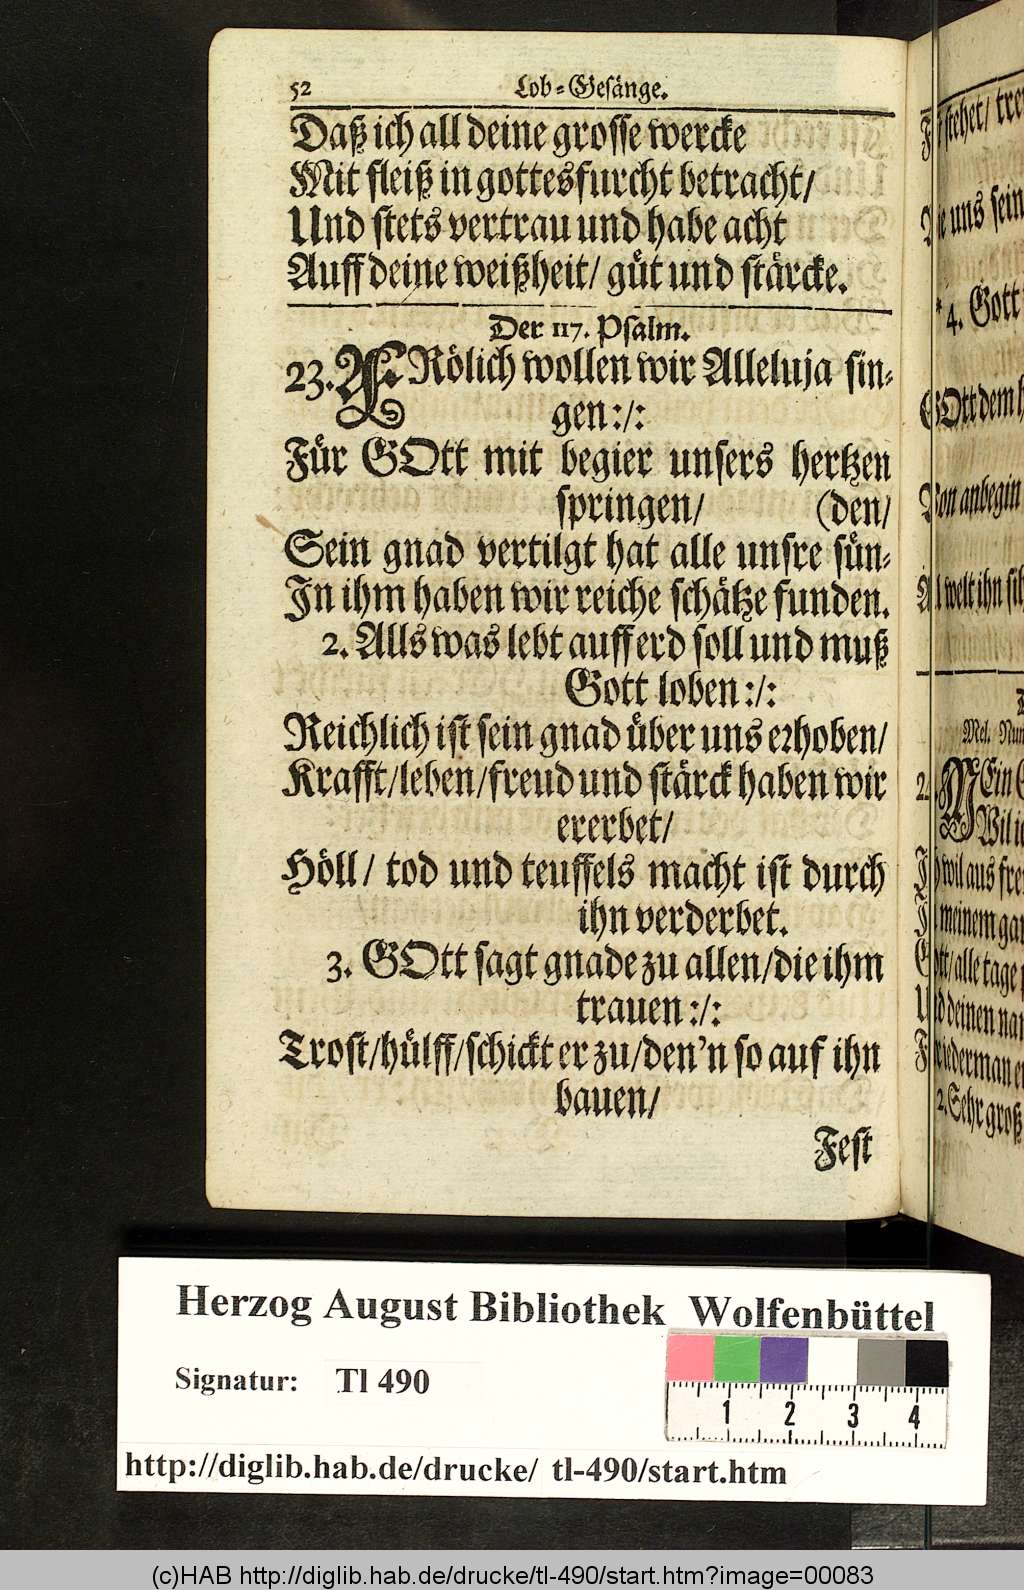 52 Lob-Gesänge.
Daß ich all deine grosse wercke
Mit fleiß in gottesfurcht betracht/
Und stets vertrau und habe acht
Auff deine weißheit/ güt und stärcke.
Der 117. Psalm.
23. FRölich wollen wir Alleluja sin-
gen:/:
Für GOtt mit begier unsers hertzen
springen/ (den/
Sein gnad vertilgt hat alle unsre sün-
In ihm haben wir reiche schätze funden.
2. Alls was lebt auff erd soll und muß
Gott loben:/:
Reichlich ist sein gnad über uns erhoben/
Krafft/leben/freud und stärck haben wir
ererbet/
Höll/ tod und teuffels macht ist durch
ihn verderbet.
3. GOtt sagt gnade zu allen/die ihm
trauen:/:
Trost/hülff/schickt er zu/den'n so auf ihn
bauen/
Fest
stehet/
uns sein
* 4. Gott
GOtt dem
Von anbegin
welt ihn
Mel. Nun
MEin
Wil
wil aus
meinem
alle tage
deinen
2. Sehr groß
Herzog August Bibliothek Wolfenbüttel
Signatur: Tl 490
1 2 3 4
http://diglib.hab.de/drucke/ tl-490/start.htm
(c)HAB http://diglib.hab.de/drucke/tl-490/start.htm?image=00083